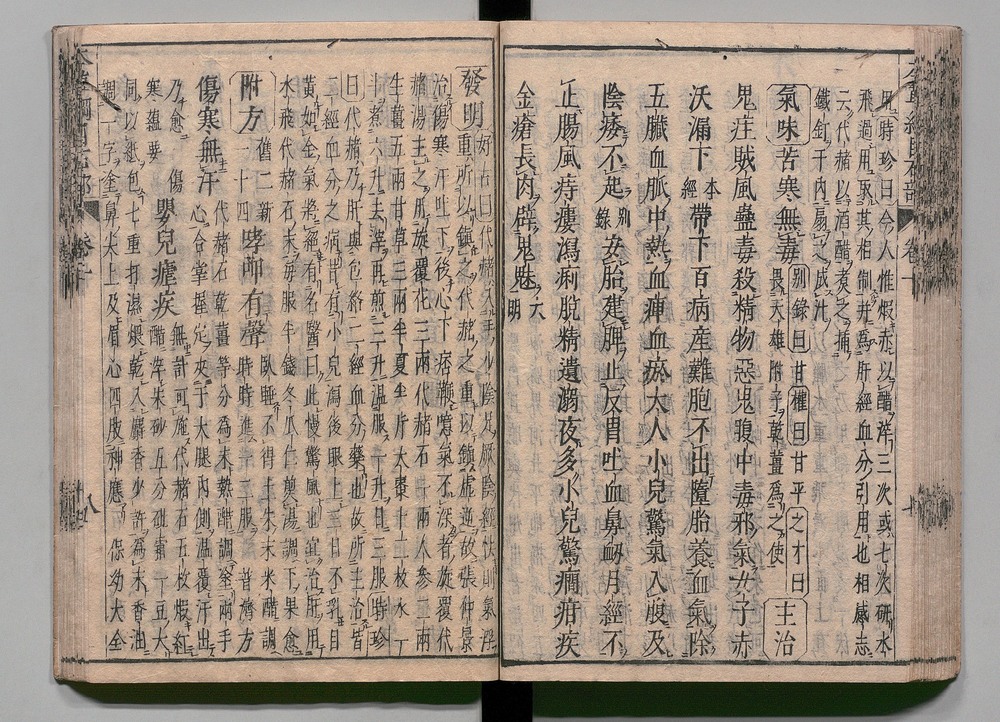 見時珍曰今人惟煆赤以醋淬三次或七次研水
飛過用取其相制并爲肝經血分引用也相感志
云代赭以酒醋煮之插
鐵釘于内扇之成汁
氣味苦寒無毒别錄曰甘權曰甘平之才曰
畏天雄附子乾薑爲之使
主治
鬼疰賊風蠱毒殺精物惡鬼腹中毒邪氣女子赤
沃漏下本經帶下百病産難胞不出墮胎養血氣除
五臟血脈中熱血痺血瘀大人小兒驚氣入腹及
陰痿不起别錄安胎建脾止反胃吐血鼻衄月經不
止腸風痔瘻瀉痢脱精遺溺夜多小兒驚癇疳疾
金瘡長肉辟鬼魅大明
發明好古曰代赭入手少陰足厥陰經怯則氣浮
重所以鎮之代赭之重以鎮虚逆故張仲景
治傷寒汗吐下後心下痞鞕噫氣不除者旋覆代
赭湯主之用旋覆花三兩代赭石一兩人參二兩
生薑五兩甘草三兩半夏半斤大棗十二枚水一
斗煮六升去滓再煎三升温服一升日三服時珍
曰代赭乃肝與包絡二經血分藥也故所主治皆
二經血分之病昔有小兒瀉後眼上三日不乳目
黄如金氣將絶有名醫曰此慢驚風也宜治肝用
水飛代赭石末每服半錢冬瓜仁煎湯調下果愈
附方舊二新一十四哮呷有聲臥睡不得土朱末米醋調
時時進一二服普濟方
傷寒無汗代赭石乾薑等分爲末熱醋調搽兩手
心合掌握定夾于大腿内側温覆汗出
乃愈傷寒蘊要嬰兒瘧疾無計可施代赭石五枚煆紅
醋淬朱砂五分砒霜一豆大
同以紙包七重打濕煨乾入麝香少許爲末香油
調一字塗鼻尖上及眉心四肢神應保幼大全